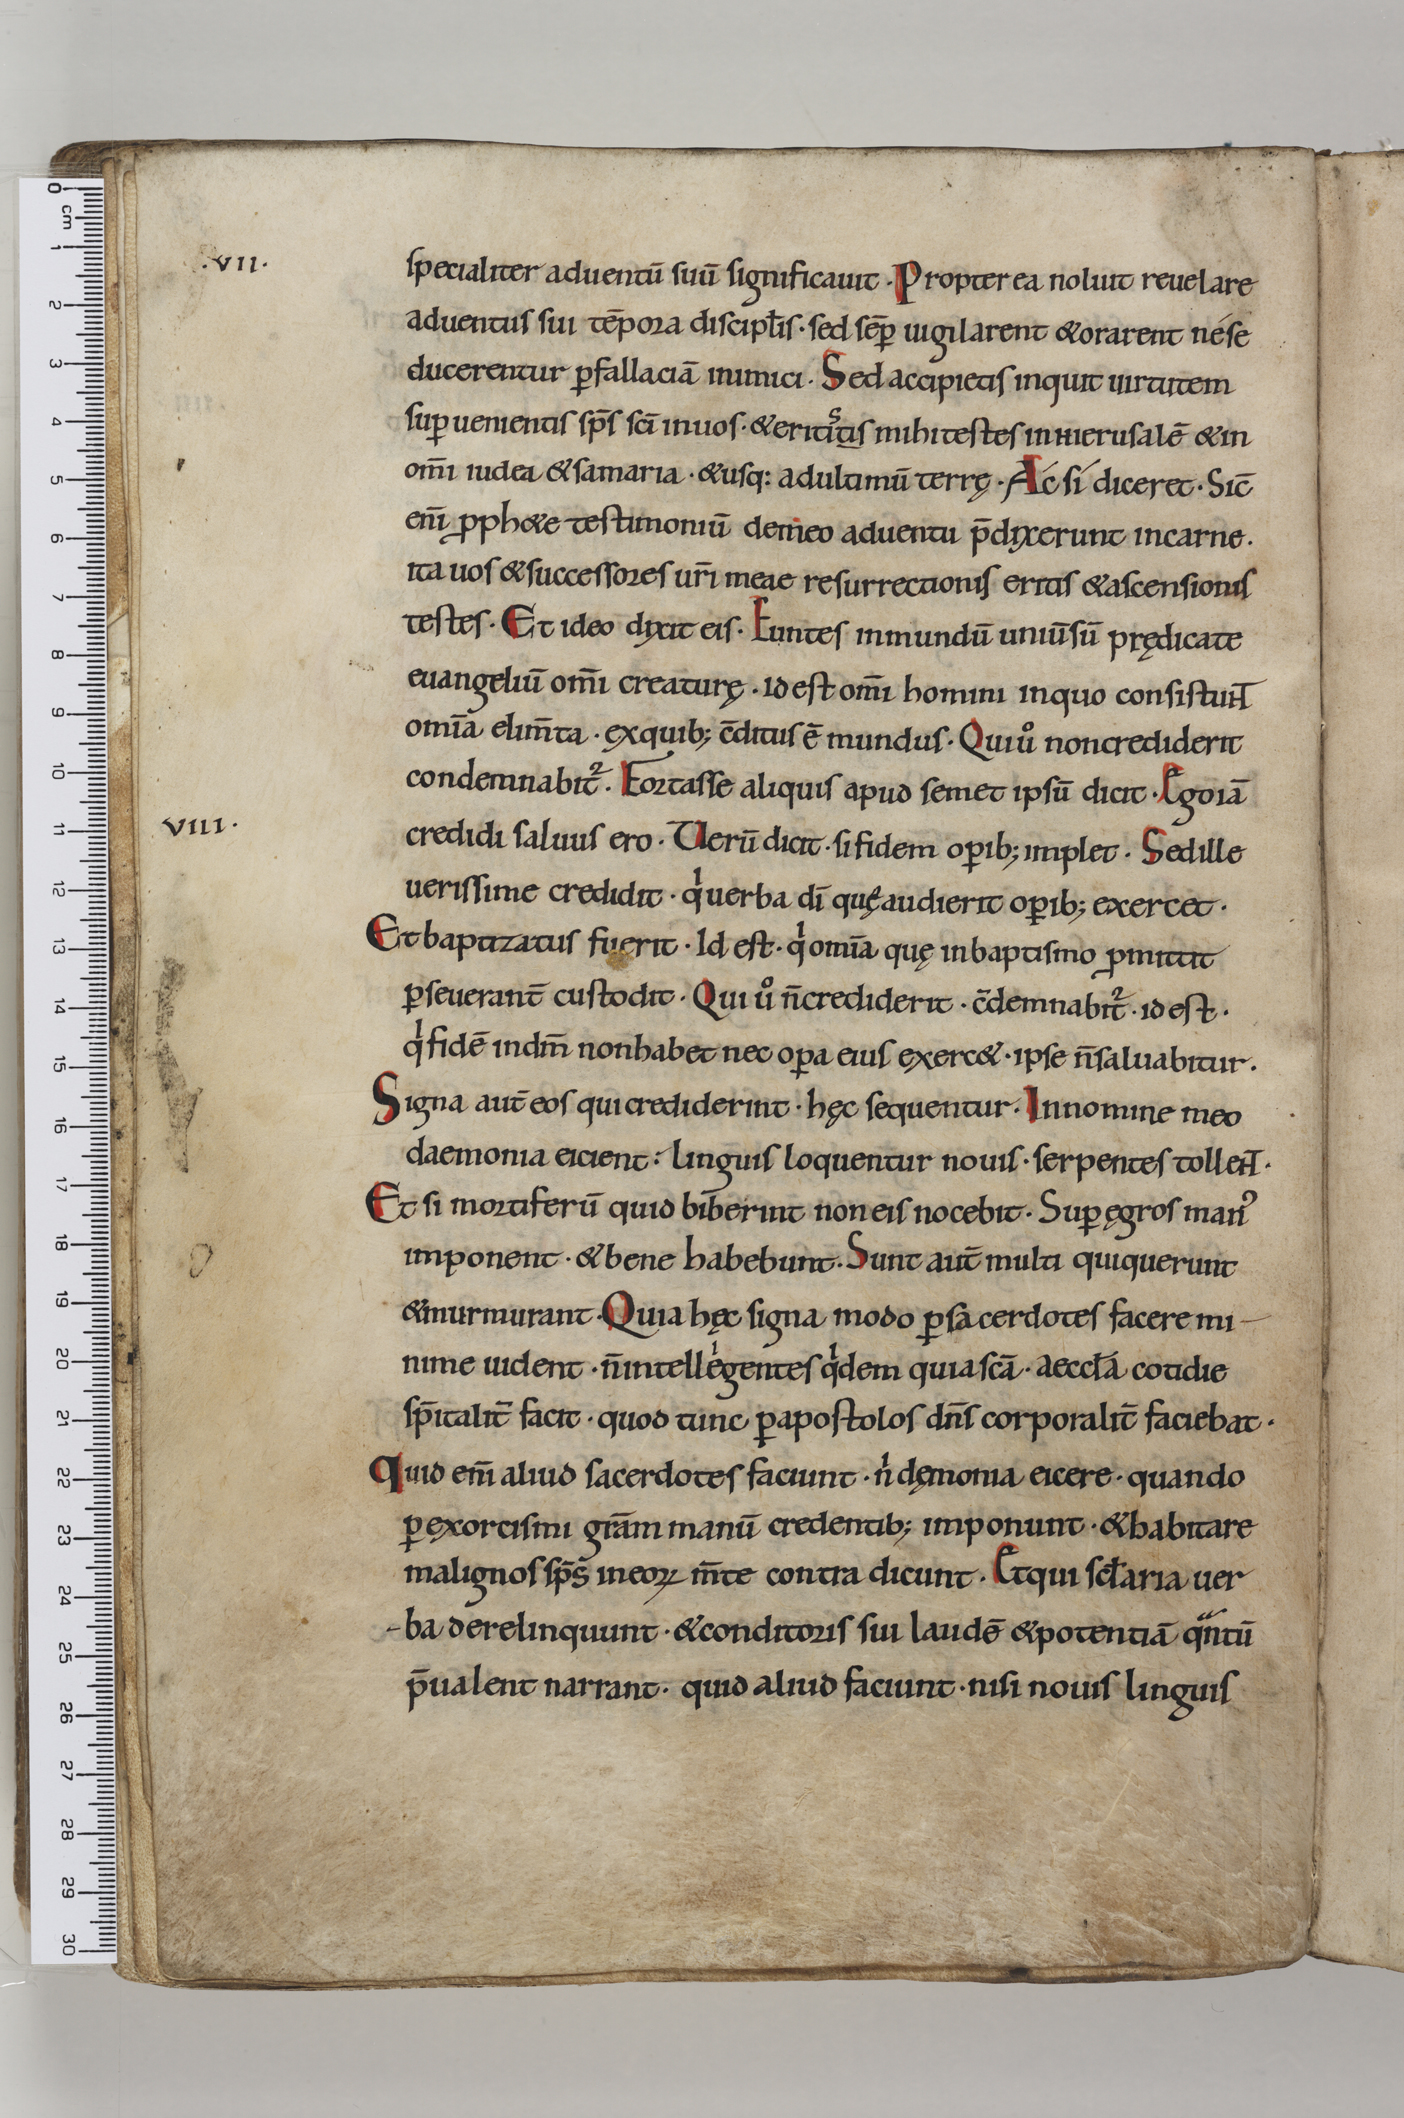 .VII.
specialiter aduentū suū significauit · Propterea noluit reuelare
aduentus sui tēpora discipl̄is · sed sēp̄ uigilarent & orarent né se
ducerentur ꝑ fallaciā inimici · Sed accipietis inquit uirtutem
suꝑuenientis sp̄s sc̄i in uos · & eritis mihi testes in hierusalē & in
om̄i iudea & samaria · & usq: ad ultimū terrę · Ác sí diceret · Sic̄
eni̅ ꝓph&e testimoniū de meo aduentu p̄dixerunt in carne ·
ita uos & successores ur̄i meae resurrectionis eritis & ascensionis
testes · Et ideo dixit eis · Euntes in mundū uniūsū prędicate
euangeliū om̄i creaturę · id est om̄i homini in quo consistunt
omīa elim̄ta · ex quib; c̄ditus ē mundus · Qui uº non crediderit
condemnabit᷑ · Fortasse aliquis apud semet ipsū dicit · Ego iā
VIII.
credidi saluus ero · Uerū dicit · si fidem oꝑib; implet · Sed ille
uerissime credidit · qͥ uerba dī quę audierit oꝑib; exercet ·
Et baptizatus fuerit · Id est · qͥ omīa quę in baptismo ꝓmittit
ꝑseuerant̄ custodit · Qui uº n̄ crediderit · c̄demnabit᷑ · id est ·
qͥ fidē in dm̄ non habet nec oꝑa eius exerc& · ipse n̄ saluabitur ·
Signa aut̄ eos qui crediderint · hęc sequentur · In nomine meo
daemonia eicient : linguis loquentur nouis · serpentes tollent ·
Et si mortiferū quid biberint non eis nocebit · Suꝑ ęgros man᾿
imponent · & bene habebunt · Sunt aut̄ multi qui querunt
& murmurant · Quia hęc signa modo ꝑ sacerdotes facere mi-
nime uident · n̄ intellegentes qͥdem quia scā · aeccl̄a cotidie
sp̄italit̄ facit · quod tunc ꝑ apostolos dn̄s corporalit̄ faciebat ·
Quid em̄ aliud sacerdotes faciunt · nͥ dęmonia eicere · quando
ꝑ exorcismi gr̄am manū credentib; imponunt · & habitare
malignos sp̄s in eoꝝ m̄te contra dicunt · Et qui sc̄laria uer
-ba derelinquunt · & conditoris sui laudē & potentiā qͣntū
p̄ualent narrant · quid aliud faciunt · nisi nouis linguis